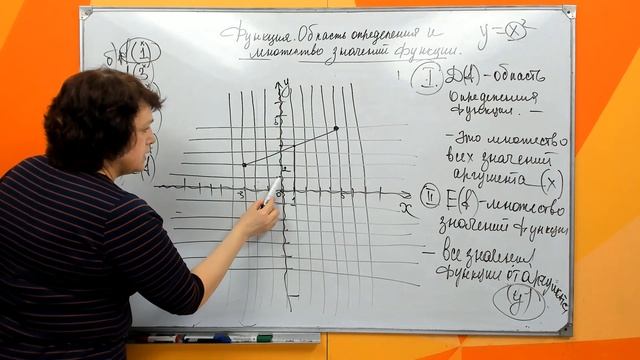 Функция. Область определения и
множество значений функции.
y = x²
б)
(1
(3
I D(f) - область
определения
функции. —
- Это множество
всех значений
аргумента (x)
II E(f) - множество
значений функции
- все значения
функции от аргумента
(y)
y
5
-3 0 1 5
x